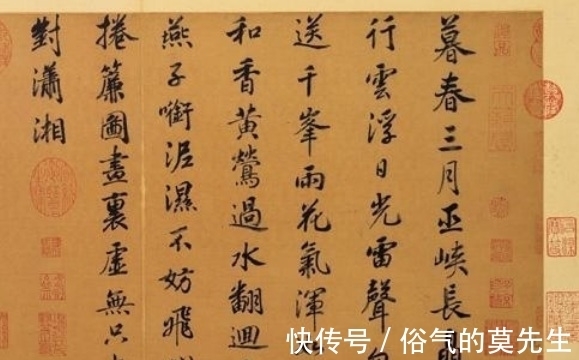 暮春三月巫峽長
行雲浮日光雷聲
送千峯雨花氣渾
和香黃鶯過水翻迴
燕子銜泥濕不妨飛
捲簾圖畫裏虛無只
對瀟湘
快传号 / 俗气的莫先生